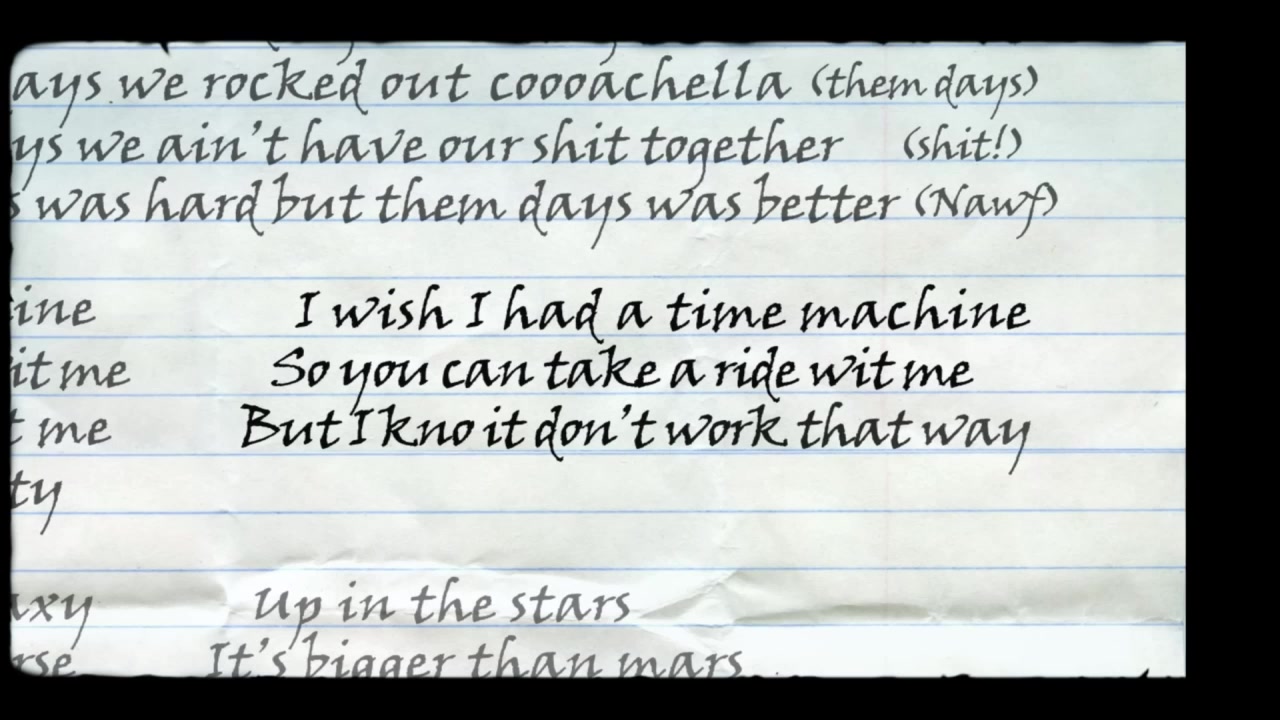 ays we rocked out coooachella (them days)
ys we ain't have our shit together (shit!)
s was hard but them days was better (Nawf)
ine I wish I had a time machine
it me So you can take a ride wit me
t me But I kno it don't work that way
ty
axy Up in the stars
rse It's bigger than mars